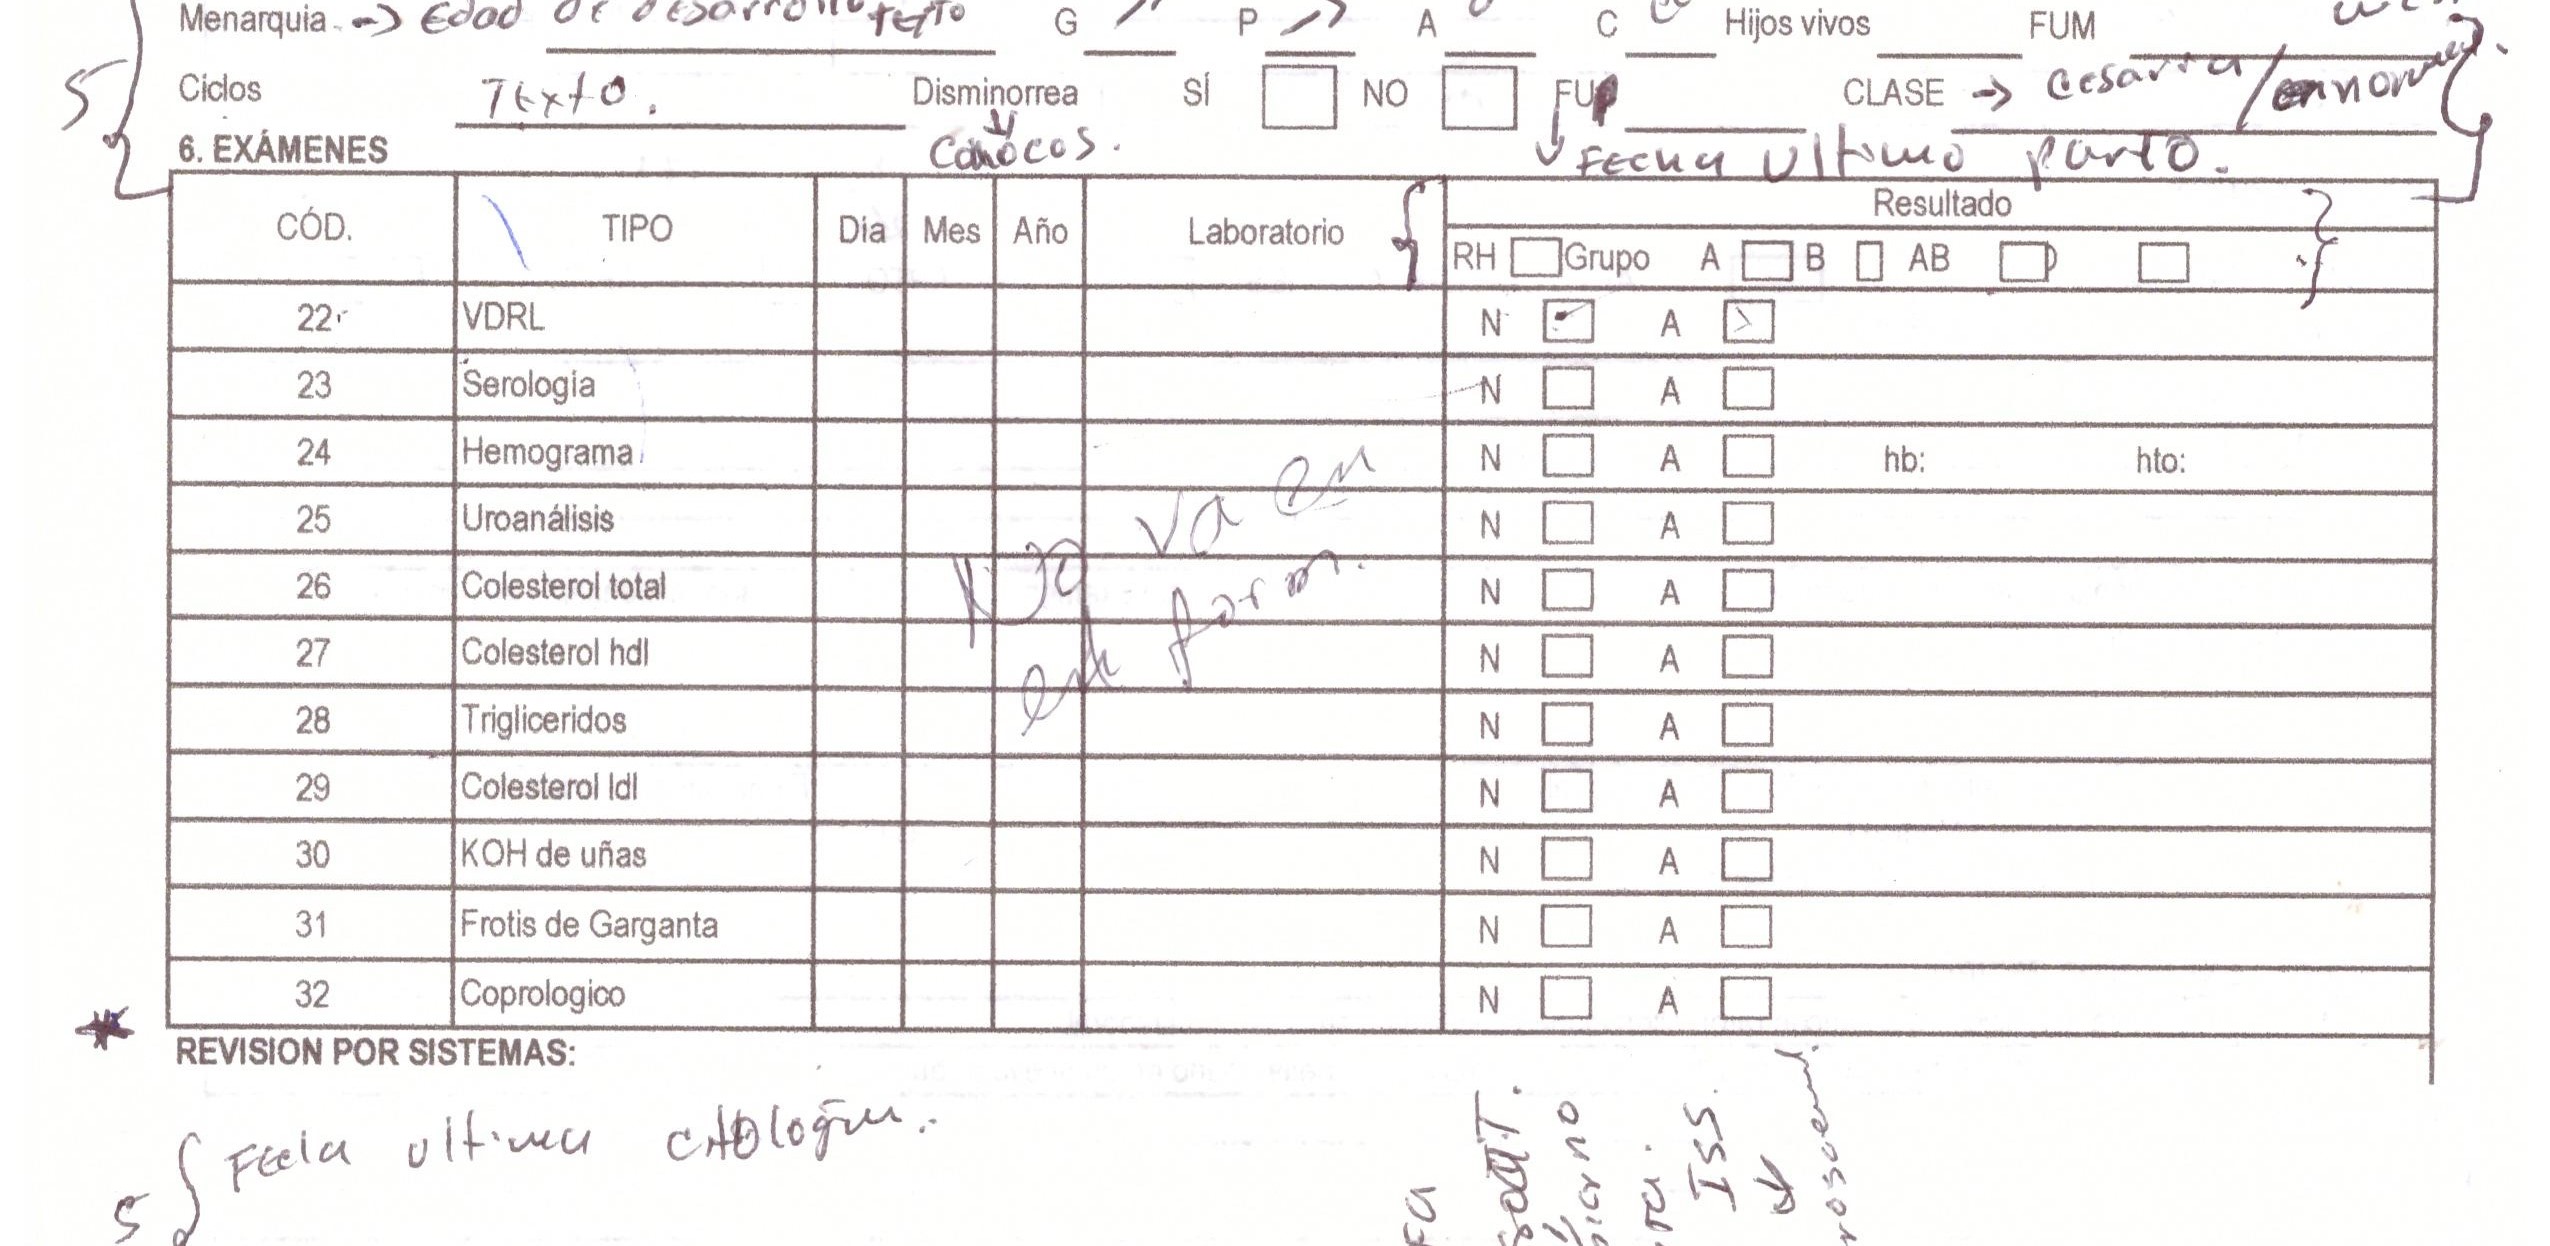 Menarquia -> Edad de desarrollo texto G P A C Hijos vivos FUM
5 Ciclos Texto. Disminorrea SÍ NO FUP CLASE -> cesarea /
6. EXÁMENES Fecha Ultimo parto.
CÓD. TIPO Dia Mes Año Laboratorio Resultado
RH Grupo A B AB O
22 VDRL N A
23 Serología N A
24 Hemograma N A hb: hto:
25 Uroanálisis N A
26 Colesterol total N A
27 Colesterol hdl N A
28 Trigliceridos N A
29 Colesterol ldl N A
30 KOH de uñas N A
31 Frotis de Garganta N A
32 Coprologico N A
No va en
form.
REVISION POR SISTEMAS:
5 Fecha ultima citologia.
ISS